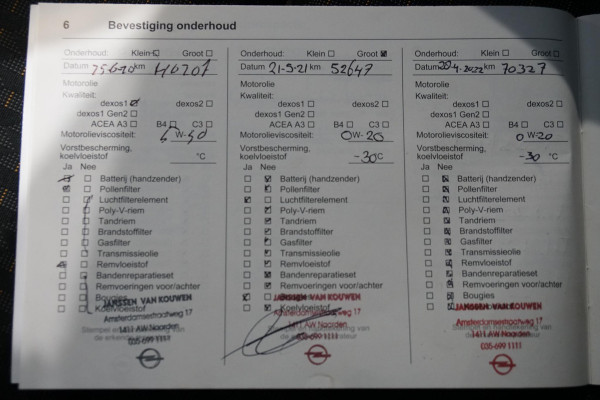 6 Bevestiging onderhoud
Onderhoud: Klein Groot
Datum km
Motorolie
Kwaliteit:
dexos1 dexos2
dexos1 Gen2
ACEA A3 B4 C3
Motorolieviscositeit: W-
Vorstbescherming,
koelvloeistof °C
Ja Nee
Batterij (handzender)
Pollenfilter
Luchtfilterelement
Poly-V-riem
Tandriem
Brandstoffilter
Gasfilter
Transmissieolie
Remvloeistof
Bandenreparatieset
Remvoeringen voor/achter
Bougies
Koelvloeistof
JANSSEN VAN KOUWEN
Amsterdamsestraatweg 17
1411 AW Naarden
035-699 1111
Onderhoud: Klein Groot
Datum 21-5-21 km 52647
Motorolie
Kwaliteit:
dexos1 dexos2
dexos1 Gen2
ACEA A3 B4 C3
Motorolieviscositeit: 0W-20
Vorstbescherming,
koelvloeistof -30°C
Ja Nee
Batterij (handzender)
Pollenfilter
Luchtfilterelement
Poly-V-riem
Tandriem
Brandstoffilter
Gasfilter
Transmissieolie
Remvloeistof
Bandenreparatieset
Remvoeringen voor/achter
Koelvloeistof
JANSSEN VAN KOUWEN
Amsterdamsestraatweg 17
1411 AW Naarden
035-699 1111
Onderhoud: Klein Groot
Datum 20-4-2022 km 70327
Motorolie
Kwaliteit:
dexos1 dexos2
dexos1 Gen2
ACEA A3 B4 C3
Motorolieviscositeit: 0W-20
Vorstbescherming,
koelvloeistof -30°C
Ja Nee
Batterij (handzender)
Pollenfilter
Luchtfilterelement
Poly-V-riem
Tandriem
Brandstoffilter
Gasfilter
Transmissieolie
Remvloeistof
Bandenreparatieset
Remvoeringen voor/achter
Bougies
JANSSEN VAN KOUWEN
Amsterdamsestraatweg 17
1411 AW Naarden
035-699 1111